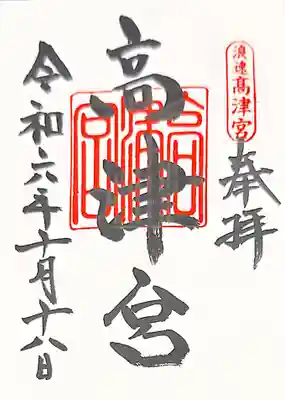 浪速高津宮
奉拝
高津宮
高津宮
令和六年十月十八日